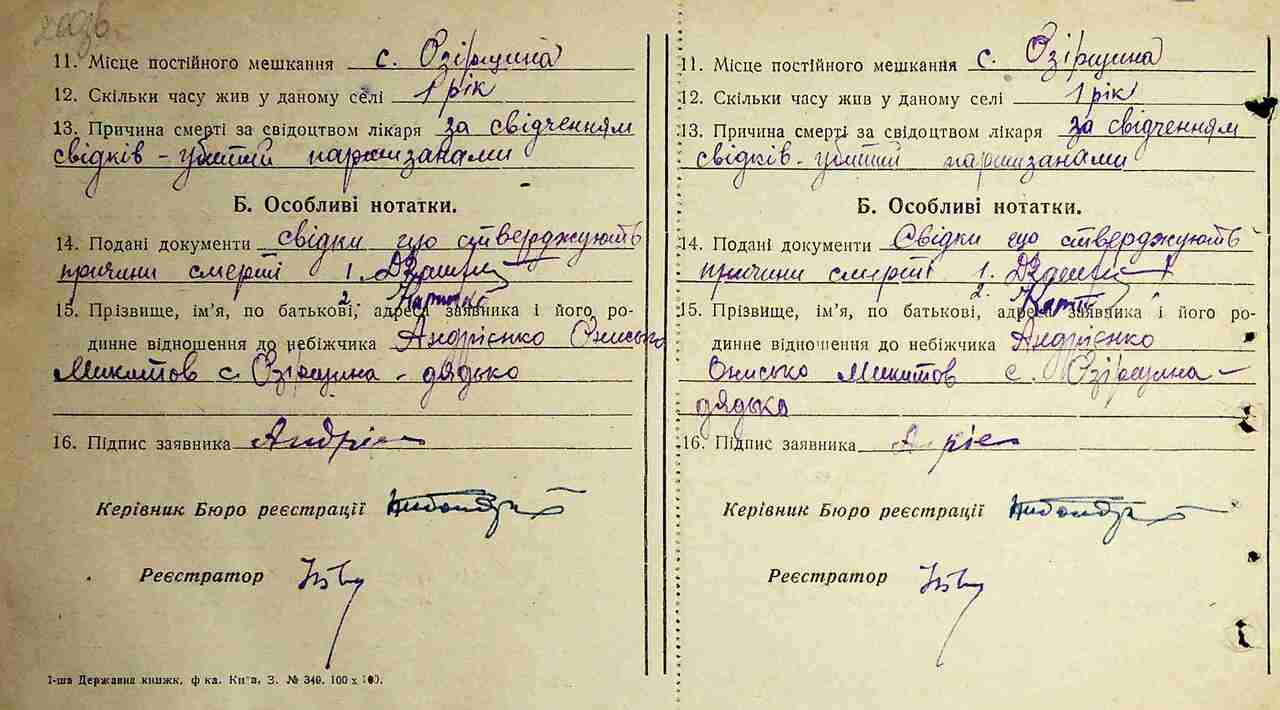 11. Місце постійного мешкання с. Озірщина
12. Скільки часу жив у даному селі 1 рік
13. Причина смерті за свідоцтвом лікаря за свідченням
свідків - убитий партизанами
Б. Особливі нотатки.
14. Подані документи свідки що стверджують
причини смерті 1.
2.
15. Прізвище, ім'я, по батькові, адреса заявника і його ро-
динне відношення до небіжчика Андрієнко Онисько
Микитов с. Озірщина - дядько
16. Підпис заявника Андріє
Керівник Бюро реєстрації
Реєстратор
1-ша Державна книжк. ф-ка. Київ, З. № 340. 100 х 100.
11. Місце постійного мешкання с. Озірщина
12. Скільки часу жив у даному селі 1 рік
13. Причина смерті за свідоцтвом лікаря за свідченням
свідків - убитий партизанами
Б. Особливі нотатки.
14. Подані документи Свідки що стверджують
причини смерті 1.
2.
15. Прізвище, ім'я, по батькові, адреса заявника і його ро-
динне відношення до небіжчика Андрієнко
Онисько Микитов с. Озірщина -
дядько
16. Підпис заявника
Керівник Бюро реєстрації
Реєстратор